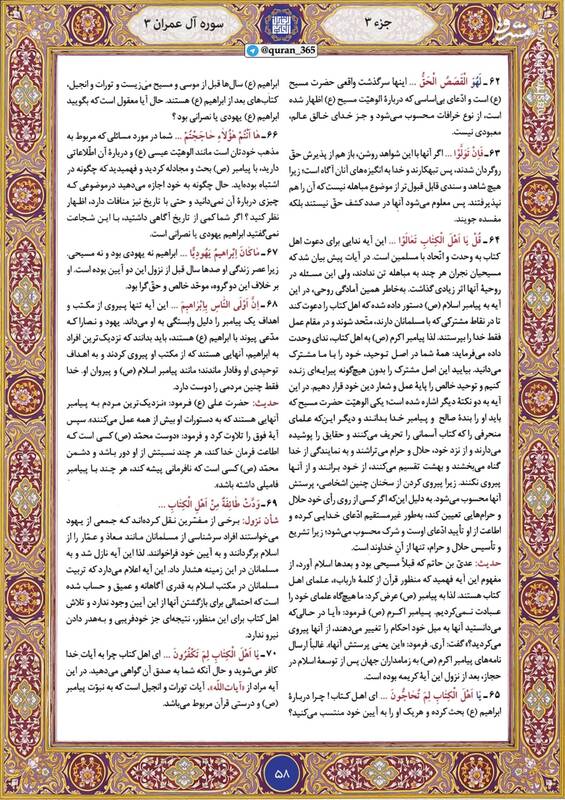 جزء ۳
سوره آل عمران ۳
@quran_365
مشرق
۶۲ـ لَهُوَ الْقَصَصُ الْحَقُّ ... اینها سرگذشت واقعی حضرت مسیح
(ع) است و ادّعای بی‌اساسی که دربارهٔ الوهیّت مسیح (ع) اظهار شده
است، از نوع خرافات محسوب می‌شود و جز خدای خالق عالم،
معبودی نیست.
۶۳ـ فَإِنْ تَوَلَّوْا ... اگر آنها با این شواهد روشن، باز هم از پذیرش حقّ
روگردان شدند، پس تبهکارند و خدا به انگیزه‌های آنان آگاه است؛ زیرا
هیچ شاهد و سندی قابل قبول‌تر از موضوع مباهله نیست که آن را هم
نپذیرفتند. پس معلوم می‌شود آنها در صدد کشف حقّ نیستند بلکه
مفسده جویند.
۶۴ـ قُلْ یَا أَهْلَ الْکِتَابِ تَعَالَوْا ... این آیه ندایی برای دعوت اهل
کتاب به وحدت و اتّحاد با مسلمین است. در آیات پیش بیان شد که
مسیحیان نجران هر چند به مباهله تن ندادند، ولی این مسئله در
روحیهٔ آنها اثر زیادی گذاشت. به‌خاطر همین آمادگی روحی، در این
آیه به پیامبر اسلام (ص) دستور داده شده که اهل کتاب را دعوت کند
تا در نقاط مشترکی که با مسلمانان دارند، متّحد شوند و در مقام عمل
فقط خدا را بپرستند. لذا پیامبر اکرم (ص) به اهل کتاب، ندای وحدت
داده می‌فرماید: همهٔ شما در اصل توحید، خود را با ما مشترک
می‌دانید. بیایید این اصل مشترک را بدون هیچ‌گونه پیرایه‌ای زنده
کنیم و توحید خالص را پایهٔ عمل و شعار دین خود قرار دهیم. در این
آیه به دو نکتهٔ دیگر اشاره شده است؛ یکی الوهیّت حضرت مسیح که
باید او را بندهٔ صالح و پیامبر خدا بدانند و دیگر این‌که علمای
منحرفی را که کتاب آسمانی را تحریف می‌کنند و حقایق را پوشیده
می‌دارند و از نزد خود، حلال و حرام می‌تراشند و به نمایندگی از خدا
گناه می‌بخشند و بهشت تقسیم می‌کنند، از خود برانند و از آنها
پیروی نکنند. زیرا پیروی کردن از سخنان چنین اشخاصی، پرستش
آنها محسوب می‌شود. به دلیل این‌که اگر کسی از روی رأی خود حلال
و حرام‌هایی تعیین کند، به‌طور غیرمستقیم ادّعای خدایی کرده و
اطاعت از او تأیید ادّعای اوست و شرک محسوب می‌شود؛ زیرا تشریع
و تأسیس حلال و حرام، تنها از آنِ خداوند است.
حدیث: عدیّ بن حاتم که قبلاً مسیحی بود و بعدها اسلام آورد، از
مفهوم این آیه فهمید که منظور قرآن از کلمهٔ «ارباب»، علمای اهل
کتاب هستند. لذا به پیامبر (ص) عرض کرد: ما هیچ‌گاه علمای خود را
عبادت نمی‌کردیم. پیامبر اکرم (ص) فرمود: «آیا در حالی‌که
می‌دانستید آنها به میل خود احکام را تغییر می‌دهند، از آنها پیروی
می‌کردید؟» گفت: آری. فرمود: «این یعنی پرستش آنها». غالباً ارسال
نامه‌های پیامبر اکرم (ص) به زمامداران جهان پس از توسعهٔ اسلام در
حجاز، بعد از نزول این آیهٔ کریمه بوده است.
۶۵ـ یَا أَهْلَ الْکِتَابِ لِمَ تُحَاجُّونَ ... ای اهل کتاب! چرا دربارهٔ
ابراهیم (ع) بحث کرده و هریک او را به آیین خود منتسب می‌کنید؟
ابراهیم (ع) سال‌ها قبل از موسی و مسیح می‌زیست و تورات و انجیل،
کتاب‌های بعد از ابراهیم (ع) هستند. حال آیا معقول است که بگویید
ابراهیم (ع) یهودی یا نصرانی بود؟
۶۶ـ هَا أَنْتُمْ هٰؤُلَاءِ حَاجَجْتُمْ ... شما در مورد مسائلی که مربوط به
مذهب خودتان است مانند الوهیّت عیسی (ع) و دربارهٔ آن اطّلاعاتی
دارید، با پیامبر (ص) بحث و مجادله کردید و فهمیدید که چگونه در
اشتباه بوده‌اید. حال چگونه به خود اجازه می‌دهید درموضوعی که
چیزی دربارهٔ آن نمی‌دانید و حتی با تاریخ نیز منافات دارد، اظهار
نظر کنید؟ اگر شما کمی از تاریخ آگاهی داشتید، با این شجاعت
نمی‌گفتید ابراهیم یهودی یا نصرانی است.
۶۷ـ مَاکَانَ إِبْرَاهِیمُ یَهُودِیًّا ... ابراهیم نه یهودی بود و نه مسیحی.
زیرا عصر زندگی او صدها سال قبل از نزول این دو آیین بوده است. او
بر خلاف این دو گروه، موحّد خالص و حقّ‌گرا بود.
۶۸ـ إِنَّ أَوْلَی النَّاسِ بِإِبْرَاهِیمَ ... این آیه تنها پیروی از مکتب و
اهداف یک پیامبر را دلیل وابستگی به او می‌داند. یهود و نصارا که
مدّعی پیوند با ابراهیم (ع) هستند، باید بدانند که نزدیک‌ترین افراد
به ابراهیم، آنهایی هستند که از مکتب او پیروی کردند و به اهداف
توحیدی او وفادار ماندند؛ مانند پیامبر اسلام (ص) و پیروان او. خدا
فقط چنین مردمی را دوست دارد.
حدیث: حضرت علی (ع) فرمود: «نزدیک‌ترین مردم به پیامبر
آنهایی هستند که به دستورات او بیش از همه عمل می‌کنند»، سپس
آیهٔ فوق را تلاوت کرد و فرمود: «دوست محمّد (ص) کسی است که
اطاعت فرمان خدا کند، هر چند نسبتش از او دور باشد و دشمن
محمّد (ص) کسی است که نافرمانی پیشه کند، هر چند با پیامبر
فامیلی داشته باشد».
۶۹ـ وَدَّتْ طَائِفَةٌ مِنْ أَهْلِ الْکِتَابِ ...
شأن نزول: برخی از مفسّرین نقل کرده‌اند که جمعی از یهود
می‌خواستند افراد سرشناسی از مسلمانان مانند معاذ و عمّار را از
اسلام برگردانند و به آیین خود فراخوانند. لذا این آیه نازل شد و به
مسلمانان در این زمینه هشدار داد. این آیه اعلام می‌دارد که تربیت
مسلمانان در مکتب اسلام به قدری آگاهانه و عمیق و حساب شده
است که احتمالی برای بازگشتن آنها از این آیین وجود ندارد و تلاش
اهل کتاب برای این منظور، نتیجه‌ای جز خودفریبی و به‌هدر دادن
نیرو ندارد.
۷۰ـ یَا أَهْلَ الْکِتَابِ لِمَ تَکْفُرُونَ ... ای اهل کتاب چرا به آیات خدا
کافر می‌شوید و حال آنکه شما به صدق آن گواهی می‌دهید. در این
آیه مراد از «آیات‌الله»، آیات تورات و انجیل است که به نبوّت پیامبر
(ص) و درستی قرآن مربوط می‌باشد.
۵۸